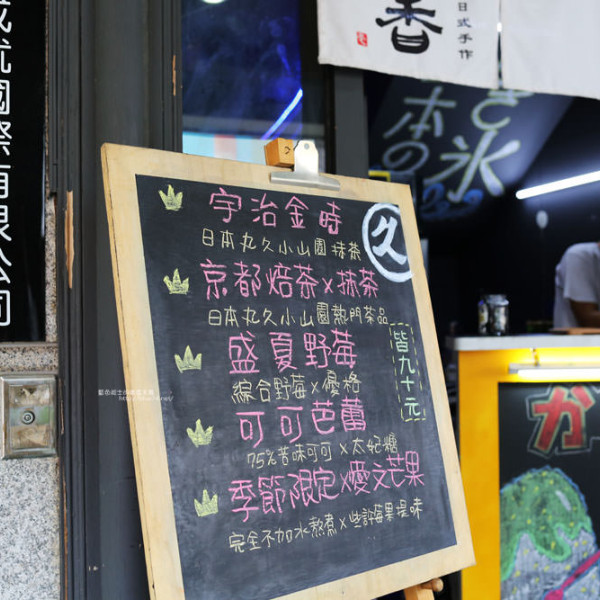 國際有限公司
香
日式手作
本の
氷
宇治金時
日本丸久小山園抹茶
久
京都焙茶x抹茶
日本丸久小山園熱門茶品
盛夏野莓
綜合野莓x優格
皆九十元
可可芭蕾
75%苦味可可x太妃糖
季節限定x愛文芒果
完全不加水熬煮x些許莓果提味
か